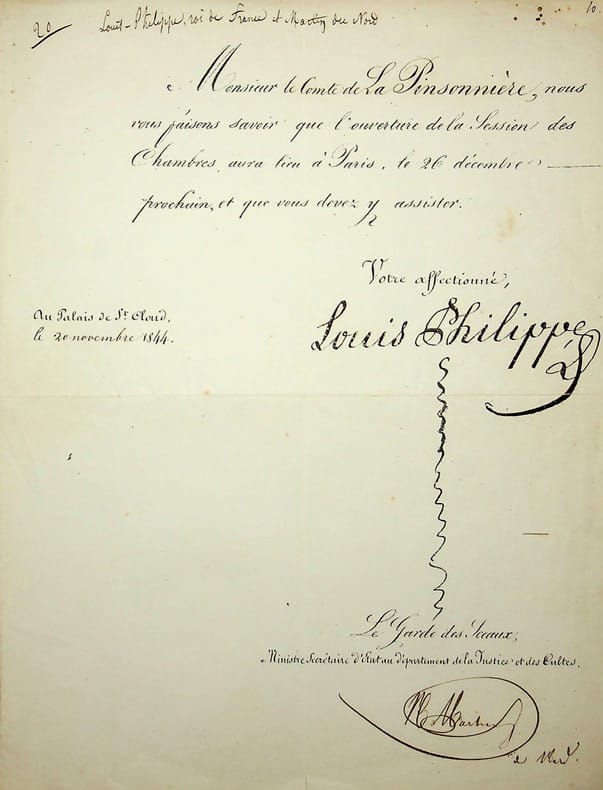 20
Louis-Philippe, roi de France et Martin du Nord
10.
Monsieur le Comte de La Pinsonnière, nous
vous faisons savoir que l'ouverture de la Session des
Chambres aura lieu à Paris, le 26 décembre
prochain, et que vous devez y assister.
Votre affectionné,
Au Palais de St Cloud,
le 20 novembre 1844.
Louis Philippe
Le Garde des Sceaux,
Ministre Secrétaire d'Etat au département de la Justice et des Cultes,
N Martin
du Nord.